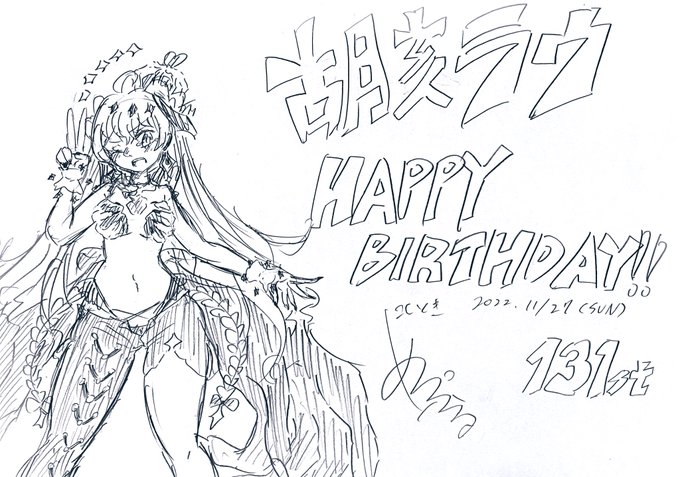 胡亥ラウ
HAPPY
BIRTHDAY!!
2022.11/27(SUN)
131